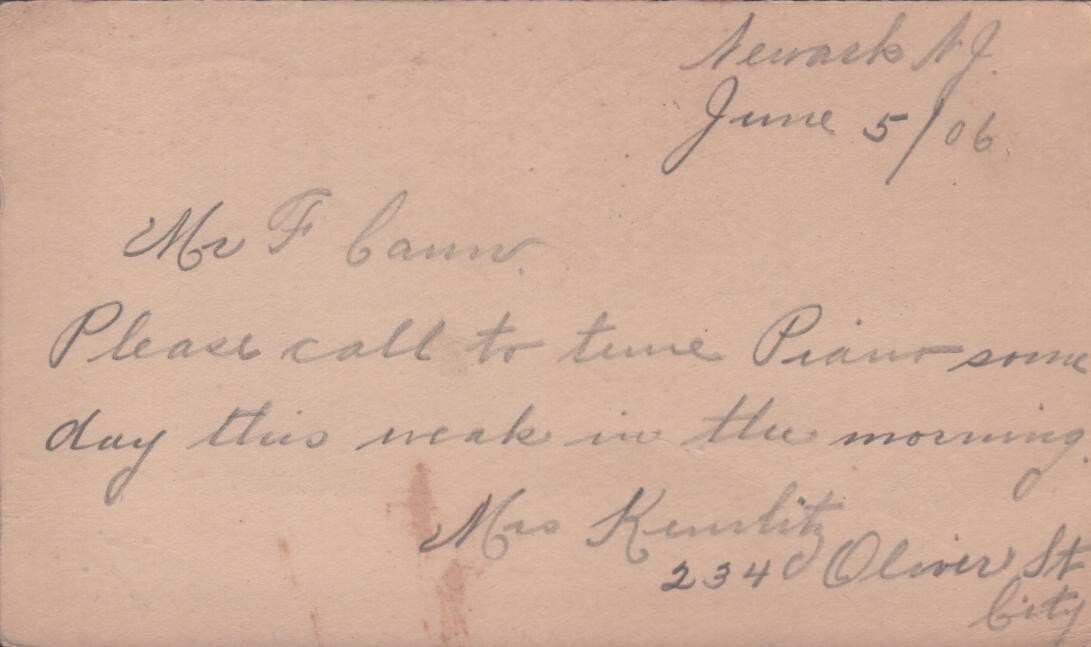 Newark N.J.
June 5/06.
Mr F
Please call to tune Piano some
day this weak in the morning.
Mrs
234 Oliver St
City